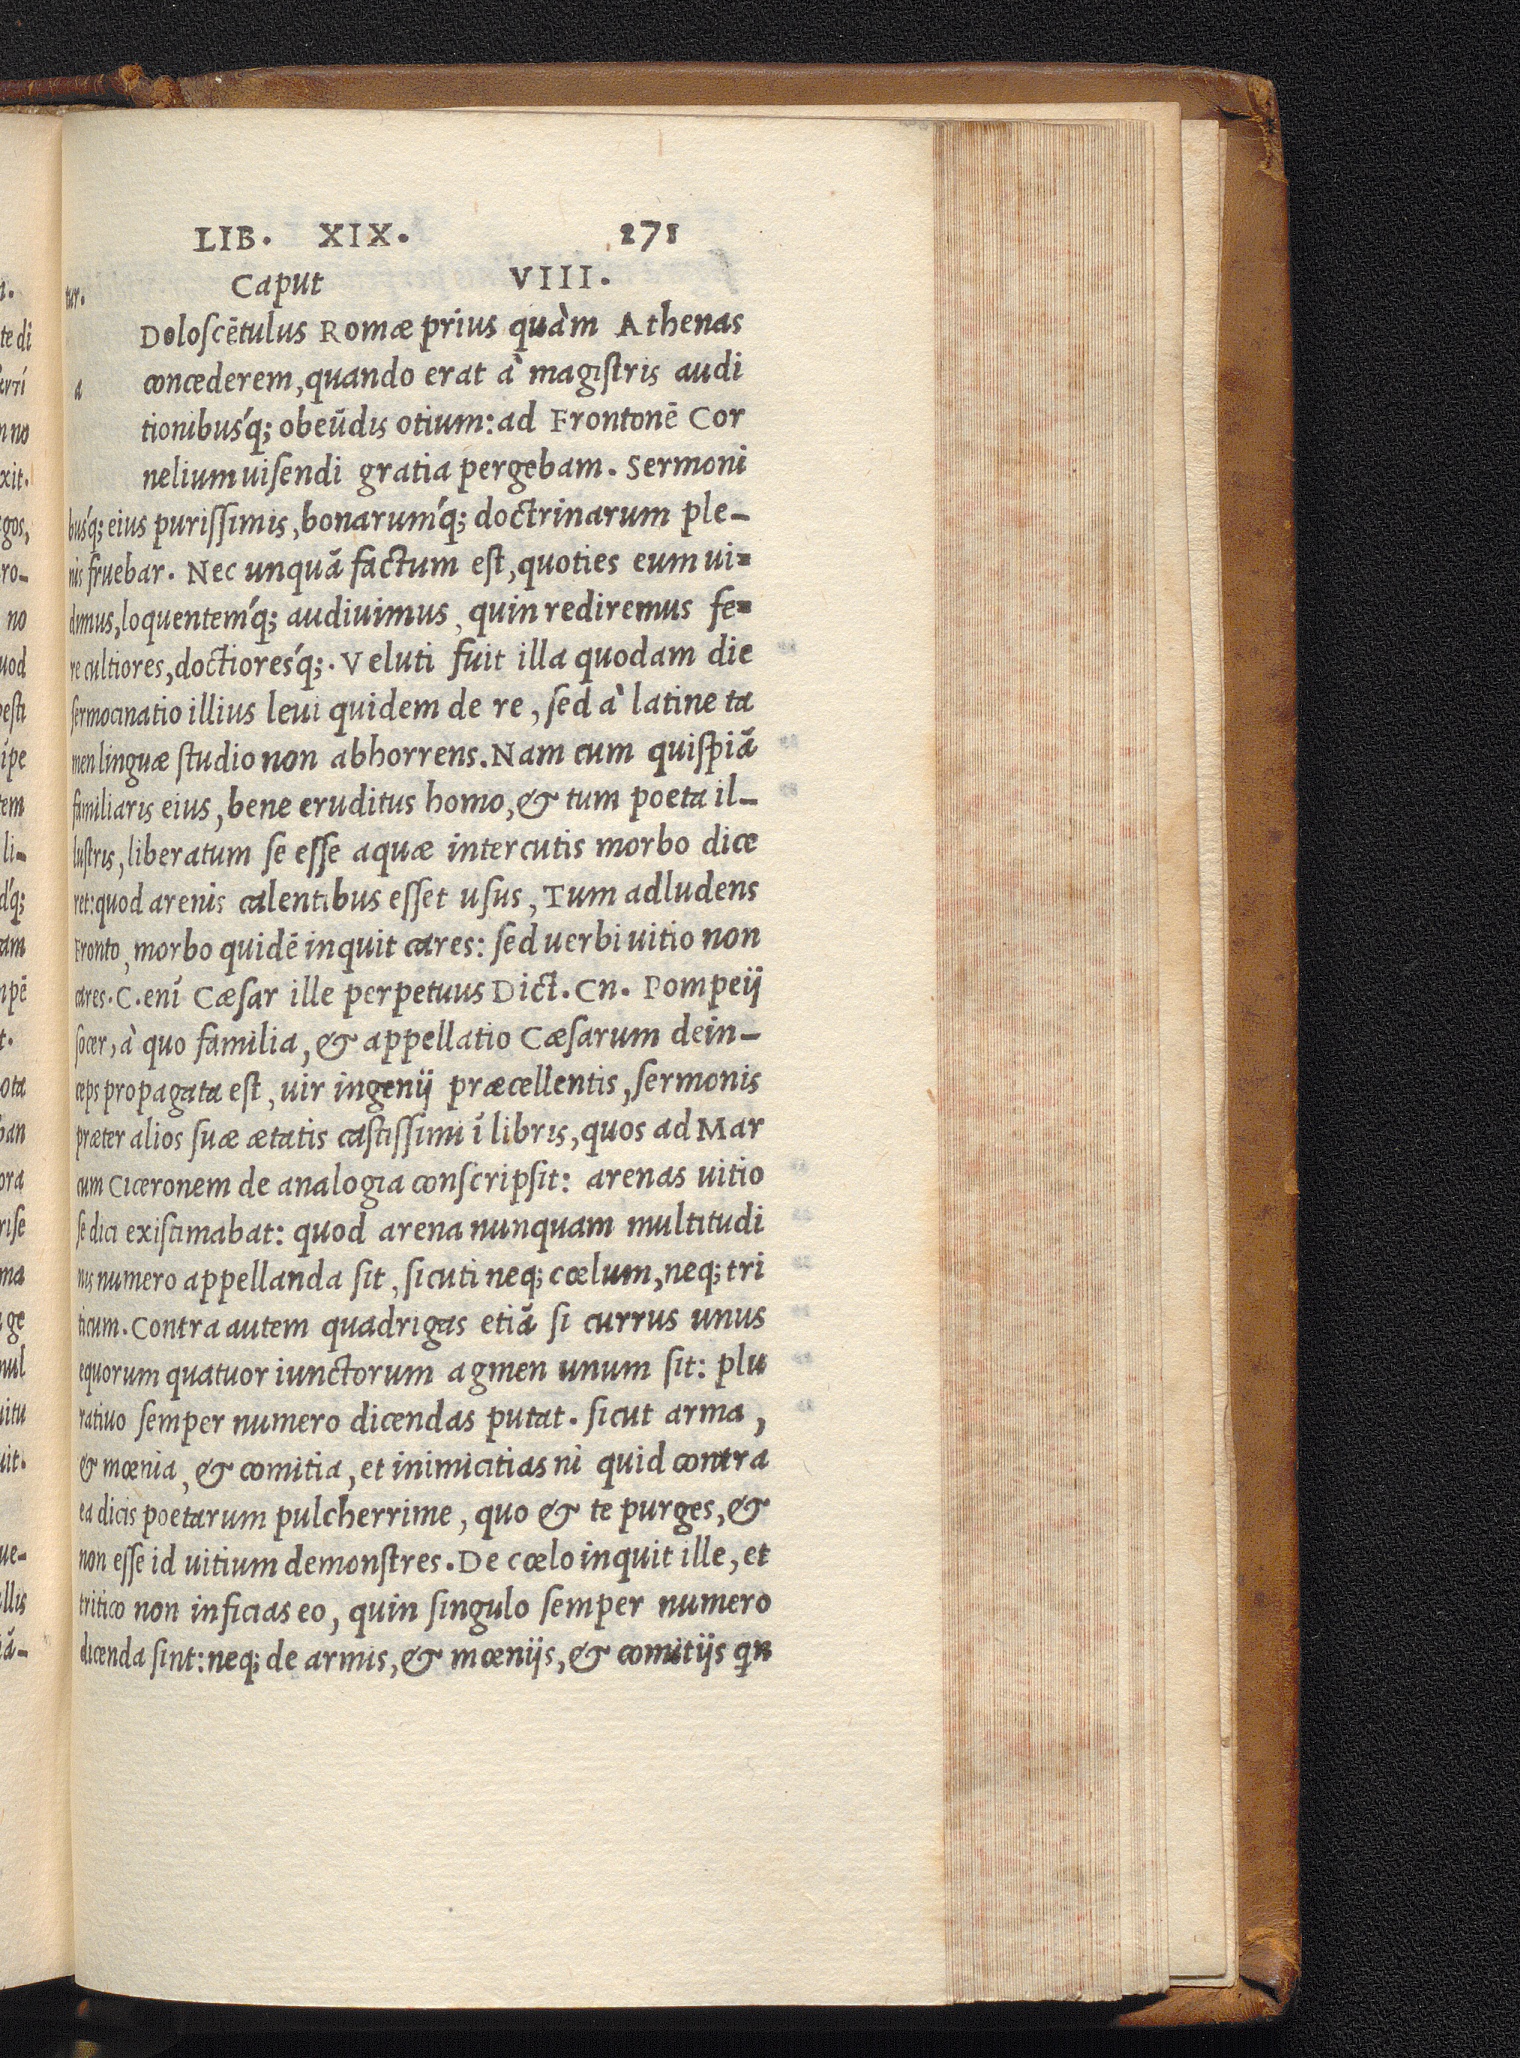 LIB. XIX. 271
tur. Caput VIII.
a Doloscētulus Romæ prius quàm Athenas
concederem, quando erat à magistris audi
tionibus'q; obeūdis otium: ad Frontonē Cor
nelium uisendi gratia pergebam. Sermoni
bus'q; eius purissimis, bonarum'q; doctrinarum ple-
nis fruebar. Nec unquā factum est, quoties eum ui-
dimus, loquentem'q; audiuimus, quin rediremus fe-
re cultiores, doctiores'q;. Veluti fuit illa quodam die
sermocinatio illius leui quidem de re, sed à latine ta
men linguæ studio non abhorrens. Nam cum quispiā
familiaris eius, bene eruditus homo, & tum poeta il-
lustris, liberatum se esse aquæ intercutis morbo dice
ret: quod arenis calentibus esset usus, Tum adludens
Fronto, morbo quidē inquit cares: sed uerbi uitio non
cares. C. enī Cæsar ille perpetuus Dict. Cn. Pompeij
socer, à quo familia, & appellatio Cæsarum dein-
ceps propagata est, uir ingenij præcellentis, sermonis
præter alios suæ ætatis castissimi ī libris, quos ad Mar
cum Ciceronem de analogia conscripsit: arenas uitio
se dici existimabat: quod arena nunquam multitudi
nis numero appellanda sit, sicuti neq; cœlum, neq; tri
ticum. Contra autem quadrigas etiā si currus unus
equorum quatuor iunctorum agmen unum sit: plu
ratiuo semper numero dicendas putat. sicut arma,
& mœnia, & comitia, et inimicitias ni quid contra
ea dicis poetarum pulcherrime, quo & te purges, &
non esse id uitium demonstres. De cœlo inquit ille, et
tritico non inficias eo, quin singulo semper numero
dicenda sint: neq; de armis, & mœnijs, & comitijs qn